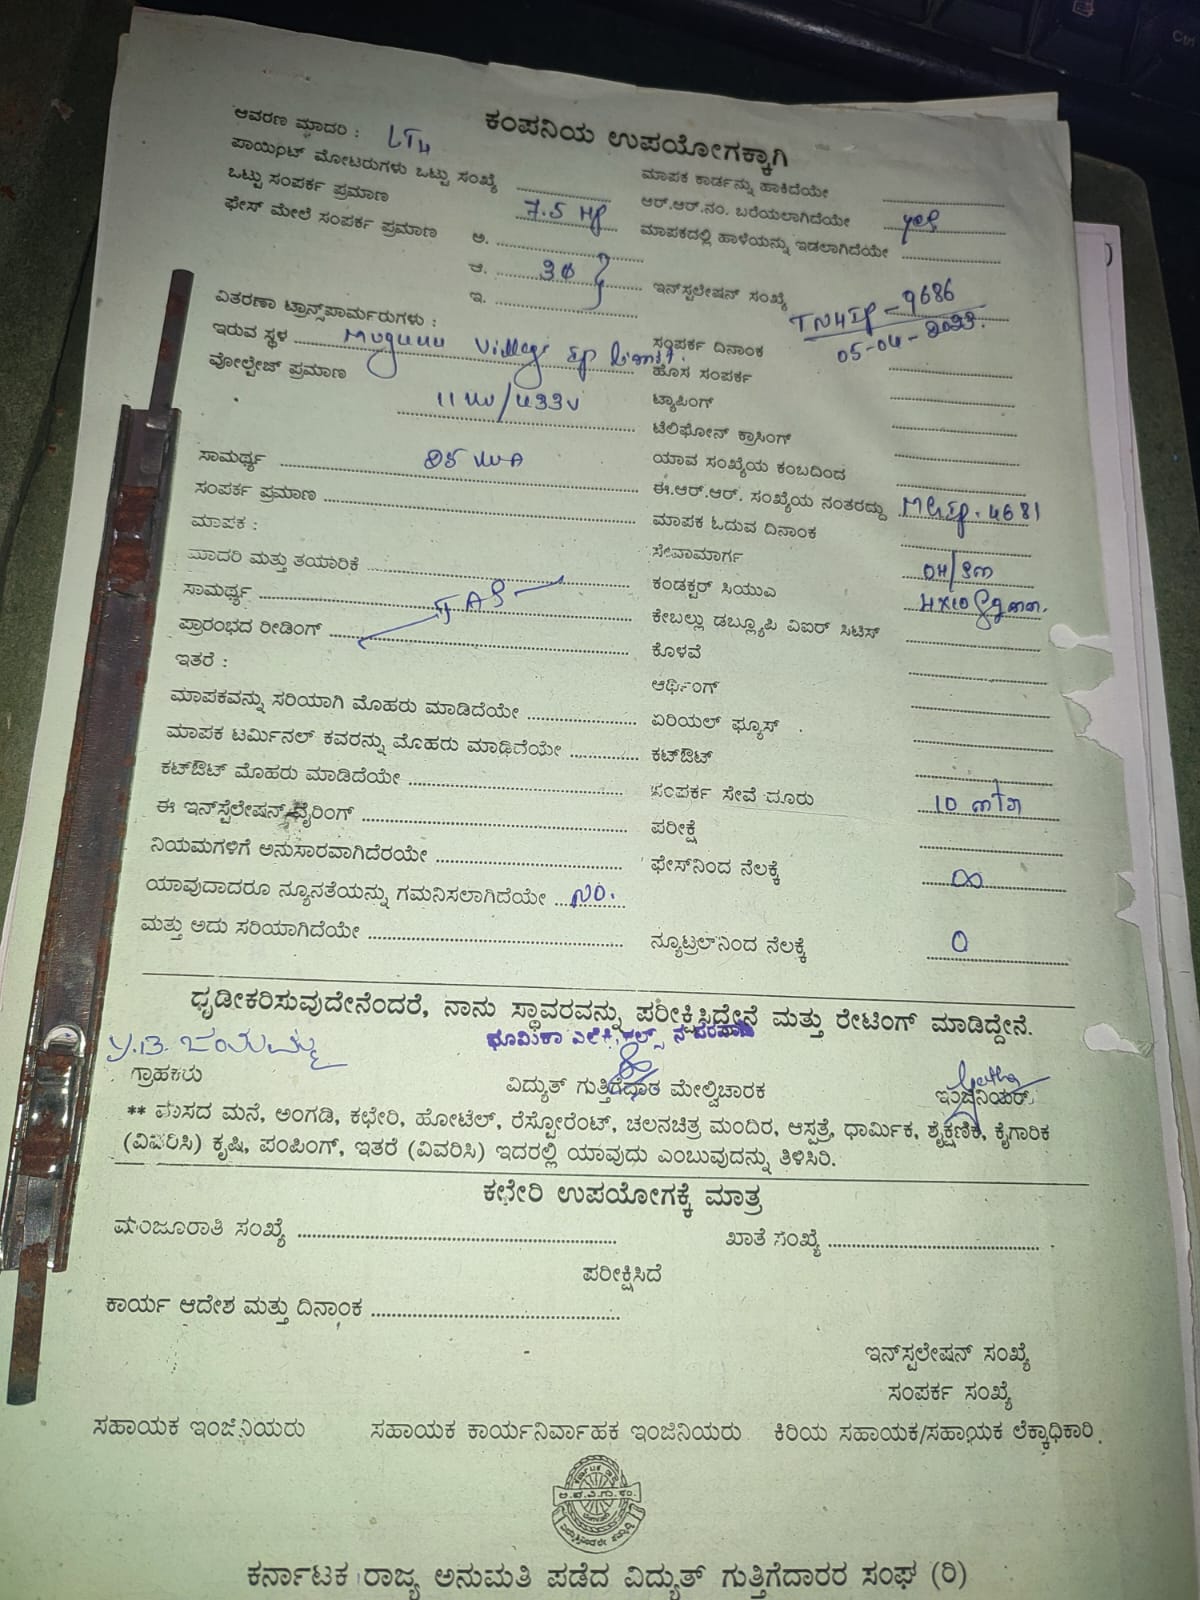 ಕಂಪನಿಯ ಉಪಯೋಗಕ್ಕಾಗಿ
ಆವರಣ ಮಾದರಿ : LT4
ಪಾಯಿಂಟ್ ಮೋಟರುಗಳು ಒಟ್ಟು ಸಂಖ್ಯೆ
ಒಟ್ಟು ಸಂಪರ್ಕ ಪ್ರಮಾಣ 7.5 HP
ಫೇಸ್ ಮೇಲೆ ಸಂಪರ್ಕ ಪ್ರಮಾಣ ಅ.
ಆ. 3Φ
ಇ.
ಮಾಪಕ ಕಾರ್ಡನ್ನು ಹಾಕಿದೆಯೇ
ಆರ್.ಆರ್.ನಂ. ಬರೆಯಲಾಗಿದೆಯೇ yes
ಮಾಪಕದಲ್ಲಿ ಹಾಳೆಯನ್ನು ಇಡಲಾಗಿದೆಯೇ
ಇನ್‌ಸ್ಟಲೇಷನ್ ಸಂಖ್ಯೆ TN4IP-9686
05-04-2023.
ವಿತರಣಾ ಟ್ರಾನ್ಸ್‌ಪಾರ್ಮರುಗಳು :
ಇರುವ ಸ್ಥಳ Village IP limit.
ವೋಲ್ಟೇಜ್ ಪ್ರಮಾಣ 11 KV/433V
ಸಾಮರ್ಥ್ಯ 25 KVA
ಸಂಪರ್ಕ ಪ್ರಮಾಣ
ಮಾಪಕ :
ಮಾದರಿ ಮತ್ತು ತಯಾರಿಕೆ
ಸಾಮರ್ಥ್ಯ
ಪ್ರಾರಂಭದ ರೀಡಿಂಗ್
ಇತರೆ :
ಮಾಪಕವನ್ನು ಸರಿಯಾಗಿ ಮೊಹರು ಮಾಡಿದೆಯೇ
ಮಾಪಕ ಟರ್ಮಿನಲ್ ಕವರನ್ನು ಮೊಹರು ಮಾಢಿದೆಯೇ
ಕಟ್‌ಔಟ್ ಮೊಹರು ಮಾಡಿದೆಯೇ
ಈ ಇನ್‌ಸ್ಟೆಲೇಷನ್ ವೈರಿಂಗ್
ನಿಯಮಗಳಿಗೆ ಅನುಸಾರವಾಗಿದೆರಯೇ
ಯಾವುದಾದರೂ ನ್ಯೂನತೆಯನ್ನು ಗಮನಿಸಲಾಗಿದೆಯೇ NO.
ಮತ್ತು ಅದು ಸರಿಯಾಗಿದೆಯೇ
ಸಂಪರ್ಕ ದಿನಾಂಕ
ಹೊಸ ಸಂಪರ್ಕ
ಟ್ಯಾಪಿಂಗ್
ಟೆಲಿಫೋನ್ ಕ್ರಾಸಿಂಗ್
ಯಾವ ಸಂಖ್ಯೆಯ ಕಂಬದಿಂದ
ಈ.ಆರ್.ಆರ್. ಸಂಖ್ಯೆಯ ನಂತರದ್ದು MGIP-4681
ಮಾಪಕ ಓದುವ ದಿನಾಂಕ
ಸೇವಾಮಾರ್ಗ OH/Sm
ಕಂಡಕ್ಟರ್ ಸಿಯುಎ 4x10 Sqmm.
ಕೇಬಲ್ಲು ಡಬ್ಲ್ಯೂಪಿ ವಿಐರ್ ಸಿಟಿಸ್
ಕೊಳವೆ
ಆರ್ಥಿಂಗ್
ಏರಿಯಲ್ ಫ್ಯೂಸ್
ಕಟ್‌ಔಟ್
ಸಂಪರ್ಕ ಸೇವೆ ದೂರು 10 mtr
ಪರೀಕ್ಷೆ
ಫೇಸ್‌ನಿಂದ ನೆಲಕ್ಕೆ ∞
ನ್ಯೂಟ್ರಲ್‌ನಿಂದ ನೆಲಕ್ಕೆ 0
ಧೃಡೀಕರಿಸುವುದೇನೆಂದರೆ, ನಾನು ಸ್ಥಾವರವನ್ನು ಪರೀಕ್ಷಿಸಿದ್ದೇನೆ ಮತ್ತು ರೇಟಿಂಗ್ ಮಾಡಿದ್ದೇನೆ.
ಗ್ರಾಹಕರು
ವಿದ್ಯುತ್ ಗುತ್ತಿಗೆದಾತ ಮೇಲ್ವಿಚಾರಕ
ಇಂಜಿನಿಯರ್
** ವಾಸದ ಮನೆ, ಅಂಗಡಿ, ಕಛೇರಿ, ಹೋಟೆಲ್, ರೆಸ್ಟೋರೆಂಟ್, ಚಲನಚಿತ್ರ ಮಂದಿರ, ಆಸ್ಪತ್ರೆ, ಧಾರ್ಮಿಕ, ಶೈಕ್ಷಣಿಕ, ಕೈಗಾರಿಕ
(ವಿವರಿಸಿ) ಕೃಷಿ, ಪಂಪಿಂಗ್, ಇತರೆ (ವಿವರಿಸಿ) ಇದರಲ್ಲಿ ಯಾವುದು ಎಂಬುವುದನ್ನು ತಿಳಿಸಿರಿ.
ಕಛೇರಿ ಉಪಯೋಗಕ್ಕೆ ಮಾತ್ರ
ಮಂಜೂರಾತಿ ಸಂಖ್ಯೆ
ಖಾತೆ ಸಂಖ್ಯೆ
ಪರೀಕ್ಷಿಸಿದೆ
ಕಾರ್ಯ ಆದೇಶ ಮತ್ತು ದಿನಾಂಕ
ಇನ್‌ಸ್ಟಲೇಷನ್ ಸಂಖ್ಯೆ
ಸಂಪರ್ಕ ಸಂಖ್ಯೆ
ಸಹಾಯಕ ಇಂಜಿನಿಯರು ಸಹಾಯಕ ಕಾರ್ಯನಿರ್ವಾಹಕ ಇಂಜಿನಿಯರು ಕಿರಿಯ ಸಹಾಯಕ/ಸಹಾಯಕ ಲೆಕ್ಕಾಧಿಕಾರಿ
ಕರ್ನಾಟಕ ರಾಜ್ಯ ಅನುಮತಿ ಪಡೆದ ವಿದ್ಯುತ್ ಗುತ್ತಿಗೆದಾರರ ಸಂಘ (ರಿ)